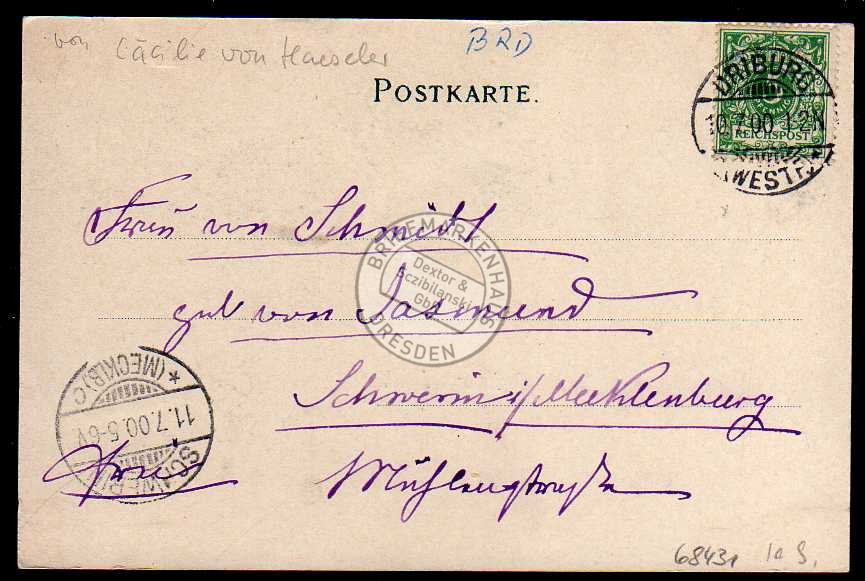 von Cäcilie von Haeseler
BRD
POSTKARTE.
5
PFENNIG
REICHSPOST
DRIBURG
10.7.00.1-2N
(WESTF.)
Frau von Schmidt
geb von Jasmund
Schwerin i/Mecklenburg
Mühlenstraße
BRIEFMARKENHAUS
Dextor &
Sczibilanski
GbR
DRESDEN
SCHWERIN
11.7.00.5-6V
* (MECKLB) C
68431 Ia S.